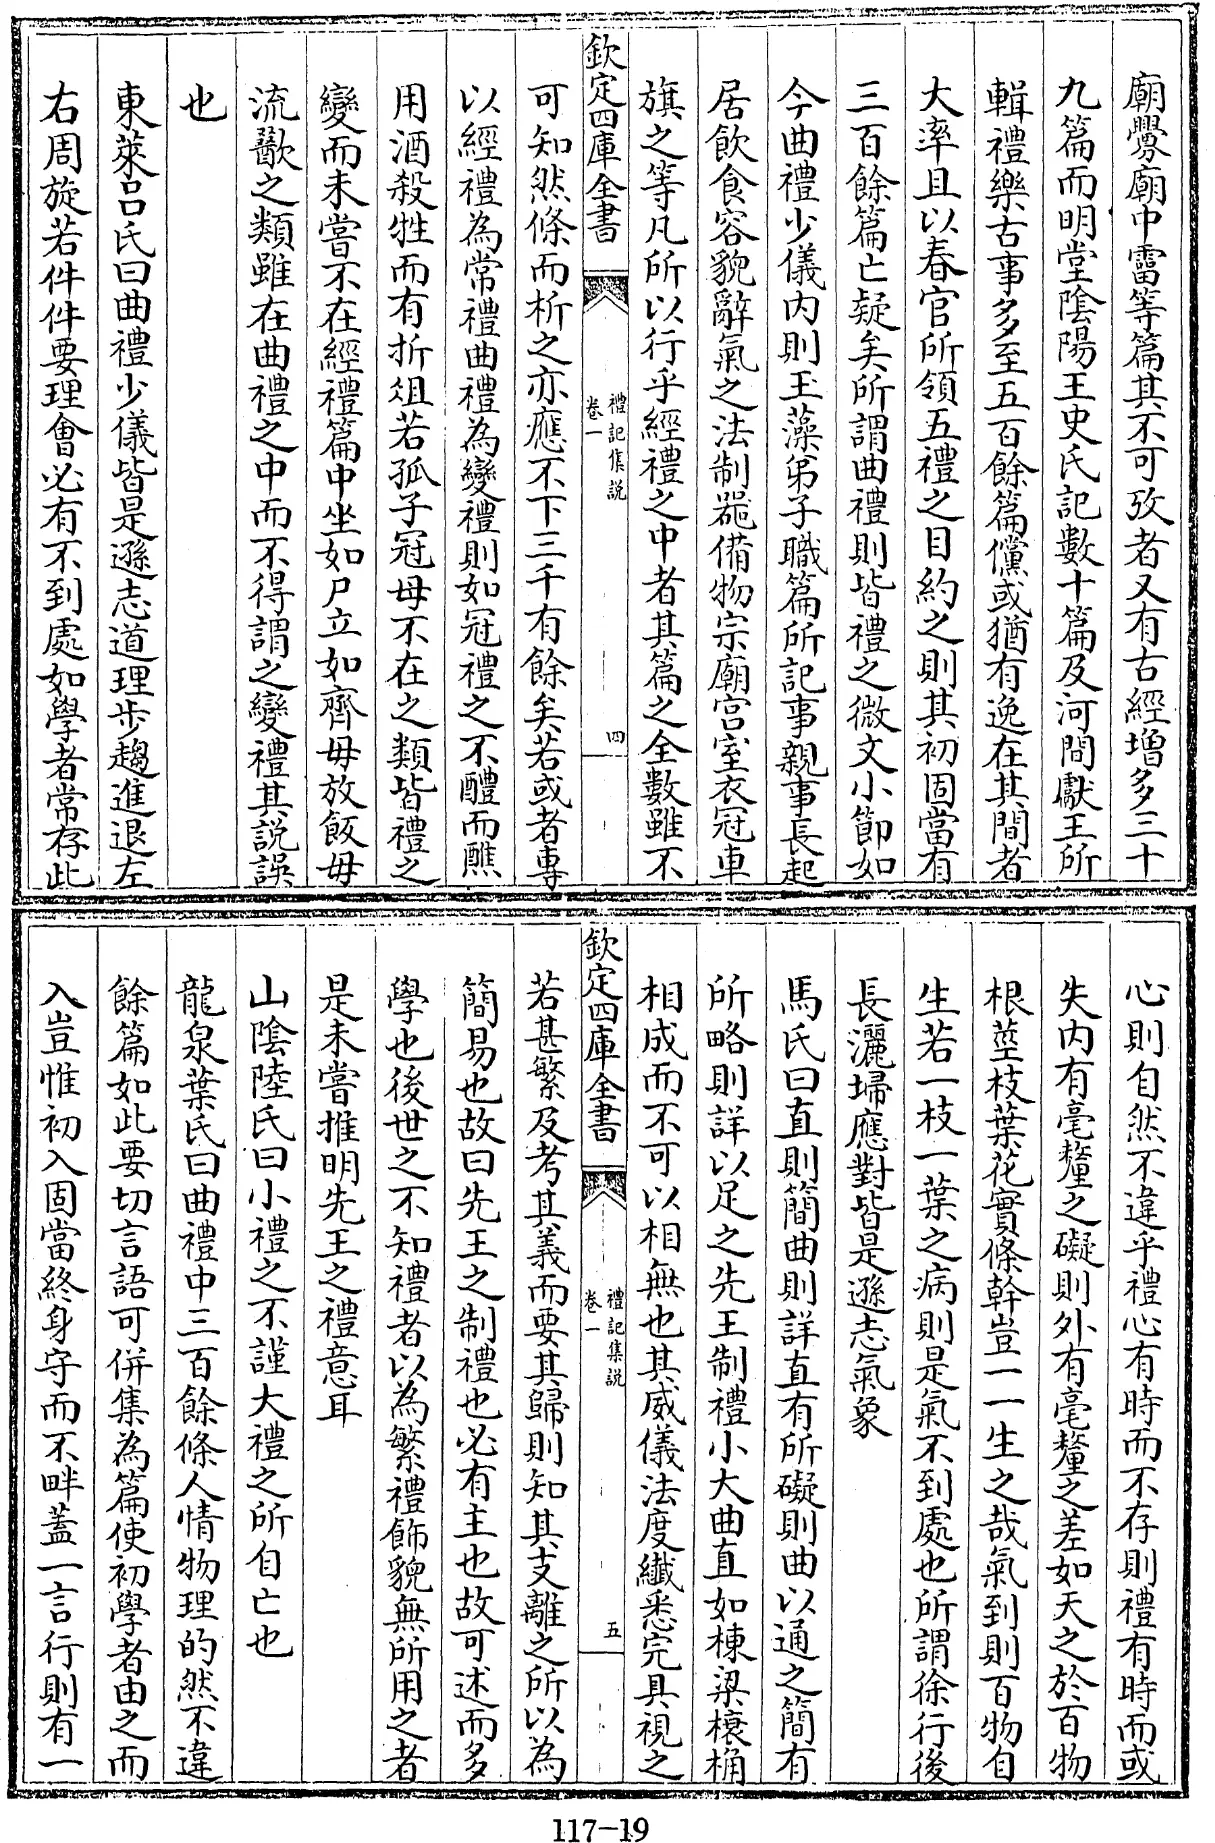 廟釁廟中霤等篇其不可攷者又有古經增多三十
九篇而明堂陰陽王史氏記數十篇及河間獻王所
輯禮樂古事多至五百餘篇儻或猶有逸在其間者
大率且以春官所領五禮之目約之則其初固當有
三百餘篇亡疑矣所謂曲禮則皆禮之微文小節如
今曲禮少儀内則玉藻弟子職篇所記事親事長起
居飲食容貌辭氣之法制器備物宗廟宫室衣冠車
旗之等凡所以行乎經禮之中者其篇之全數雖不
欽定四庫全書
禮記集説
卷一
四
可知然條而析之亦應不下三千有餘矣若或者專
以經禮為常禮曲禮為變禮則如冠禮之不醴而醮
用酒殺牲而有折俎若孤子冠母不在之類皆禮之
變而未嘗不在經禮篇中坐如尸立如齊毋放飯毋
流歠之類雖在曲禮之中而不得謂之變禮其説誤
也
東萊吕氏曰曲禮少儀皆是遜志道理步趨進退左
右周旋若件件要理會必有不到處如學者常存此
心則自然不違乎禮心有時而不存則禮有時而或
失内有毫釐之礙則外有毫釐之差如天之於百物
根莖枝葉花實條幹豈一一生之哉氣到則百物自
生若一枝一葉之病則是氣不到處也所謂徐行後
長灑埽應對皆是遜志氣象
馬氏曰直則簡曲則詳直有所礙則曲以通之簡有
所略則詳以足之先王制禮小大曲直如棟梁榱桷
相成而不可以相無也其威儀法度纖悉完具視之
欽定四庫全書
禮記集説
卷一
五
若甚繁及考其義而要其歸則知其支離之所以為
簡易也故曰先王之制禮也必有主也故可述而多
學也後世之不知禮者以為繁禮飾貌無所用之者
是未嘗推明先王之禮意耳
山陰陸氏曰小禮之不謹大禮之所自亡也
龍泉葉氏曰曲禮中三百餘條人情物理的然不違
餘篇如此要切言語可併集為篇使初學者由之而
入豈惟初入固當終身守而不畔蓋一言行則有一
117-19